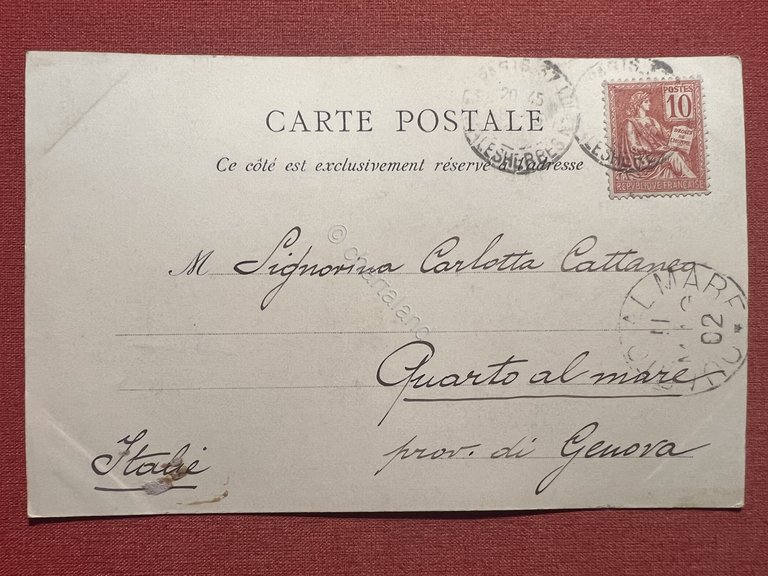 PARIS 37
20 45
MALESHERBES
POSTES
10
DROITS
DE
L'HOMME
REPUBLIQUE FRANÇAISE
CARTE POSTALE
Ce côté est exclusivement réservé à l'adresse
© cartaland
M Signorina Carlotta Cattaneo
AL MARE
11
02
Quarto al mare
prov. di Genova
Italie